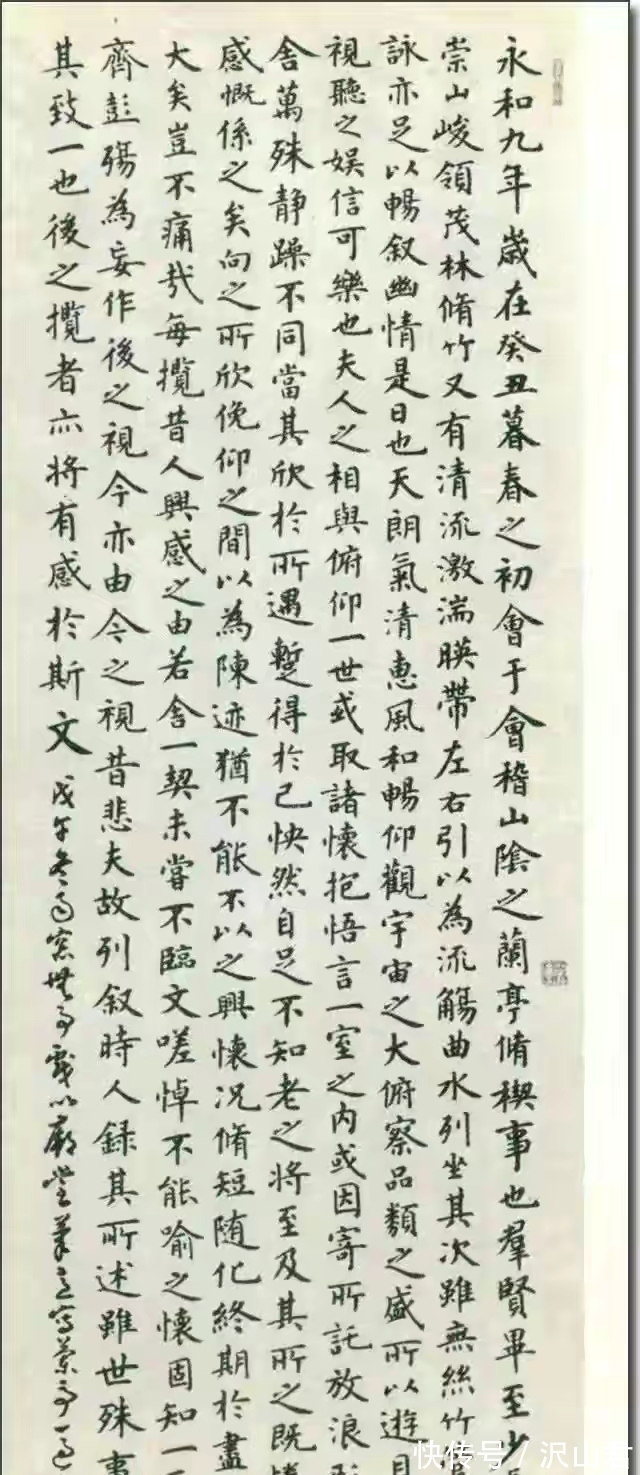 永和九年歲在癸丑暮春之初會于會稽山陰之蘭亭脩稧事也羣賢畢至少
崇山峻領茂林脩竹又有清流激湍暎帶左右引以為流觴曲水列坐其次雖無絲竹
詠亦足以暢叙幽情是日也天朗氣清惠風和暢仰觀宇宙之大俯察品類之盛所以遊目
視聽之娛信可樂也夫人之相與俯仰一世或取諸懷抱悟言一室之内或因寄所託放浪形
舍萬殊静躁不同當其欣於所遇蹔得於己快然自足不知老之將至及其所之既
感慨係之矣向之所欣俛仰之間以為陳迹猶不能不以之興懷况脩短随化終期於盡
大矣豈不痛哉每攬昔人興感之由若合一契未嘗不臨文嗟悼不能喻之懷固知一
齊彭殤為妄作後之視今亦由今之視昔悲夫故列叙時人錄其所述雖世殊事
其致一也後之攬者亦將有感於斯文 戊午冬雨窓無事戲以廟堂筆意寫蘭亭一過
快传号/沢山君